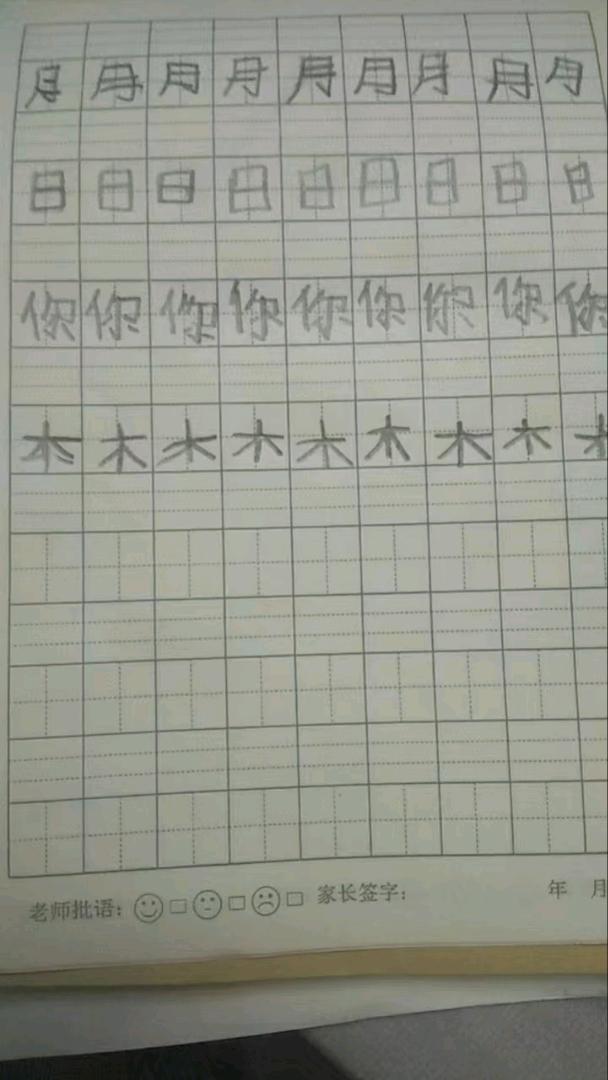 月 月 月 月 月 月 月 月 月
日 日 日 日 日 日 日 日 日
你 你 你 你 你 你 你 你 你
木 木 木 木 木 木 木 木 木
老师批语： 家长签字： 年 月